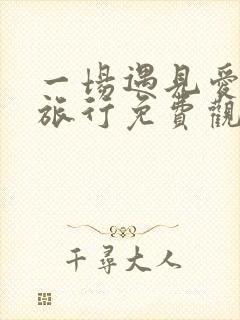 一場遇見愛
旅行免費觀
千尋大人